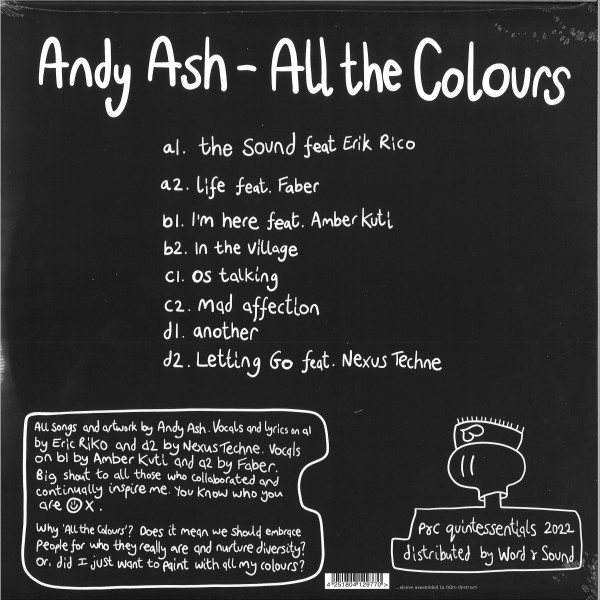 Andy Ash - All the Colours
a1. the Sound feat Erik Rico
a2. Life feat. Faber
b1. I'm here feat. Amber Kuti
b2. In the Village
c1. os talking
c2. mad affection
d1. another
d2. Letting Go feat. Nexus Techne
All songs and artwork by Andy Ash. Vocals and lyrics on a1
by Eric RiKo and d2 by Nexus Techne. Vocals
on b1 by Amber Kuti and a2 by Faber.
Big shout to all those who collaborated and
continually inspire me. You know who you
are ☺ x.
Why 'All the Colours'? Does it mean we should embrace
People for who they really are and nurture diversity?
Or, did I just want to paint with all my colours?
p&c quintessentials 2022
distributed by Word & Sound
4 251804 129770 >
...sleeve assembled in büro destruct